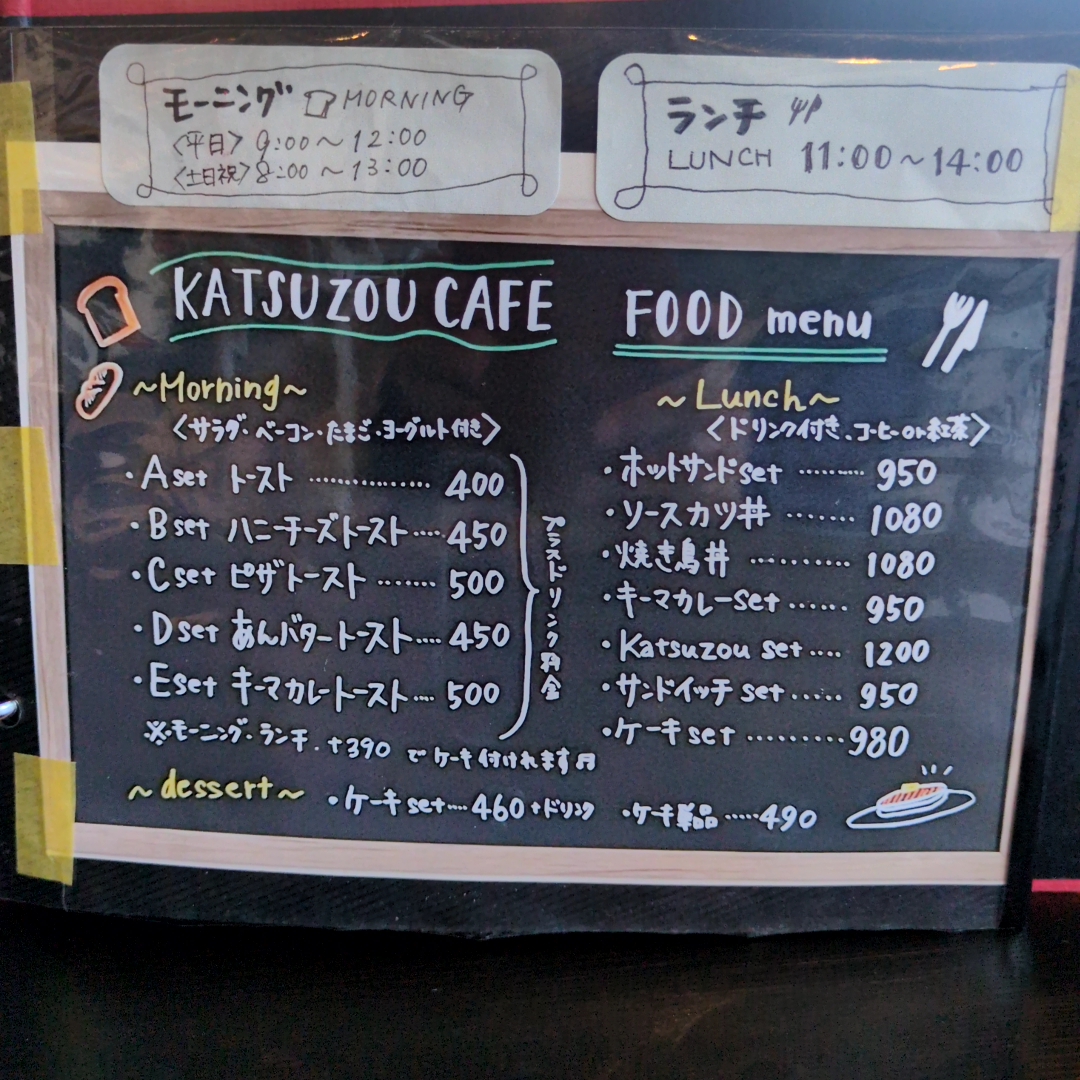 モーニング MORNING
〈平日〉 9:00～12:00
〈土日祝〉8:00～13:00
ランチ
LUNCH 11:00～14:00
KATSUZOU CAFE
FOOD menu
~Morning~
〈サラダ・ベーコン・たまご・ヨーグルト付き〉
・Aset トースト ............... 400
・Bset ハニーチーズトースト.... 450
・Cset ピザトースト ........ 500
・Dset あんバタートースト.... 450
・Eset キーマカレートースト.... 500
プラスドリンク料金
※モーニング・ランチ・+390 でケーキ付けれます♬
~Lunch~
〈ドリンク付き、コーヒーor紅茶〉
・ホットサンドset ......... 950
・ソースカツ丼 ........ 1080
・焼き鳥丼 ........... 1080
・キーマカレーset ...... 950
・Katsuzou set .... 1200
・サンドイッチ set ...... 950
・ケーキset ......... 980
~dessert~
・ケーキset.... 460+ドリンク
・ケーキ単品 ..... 490